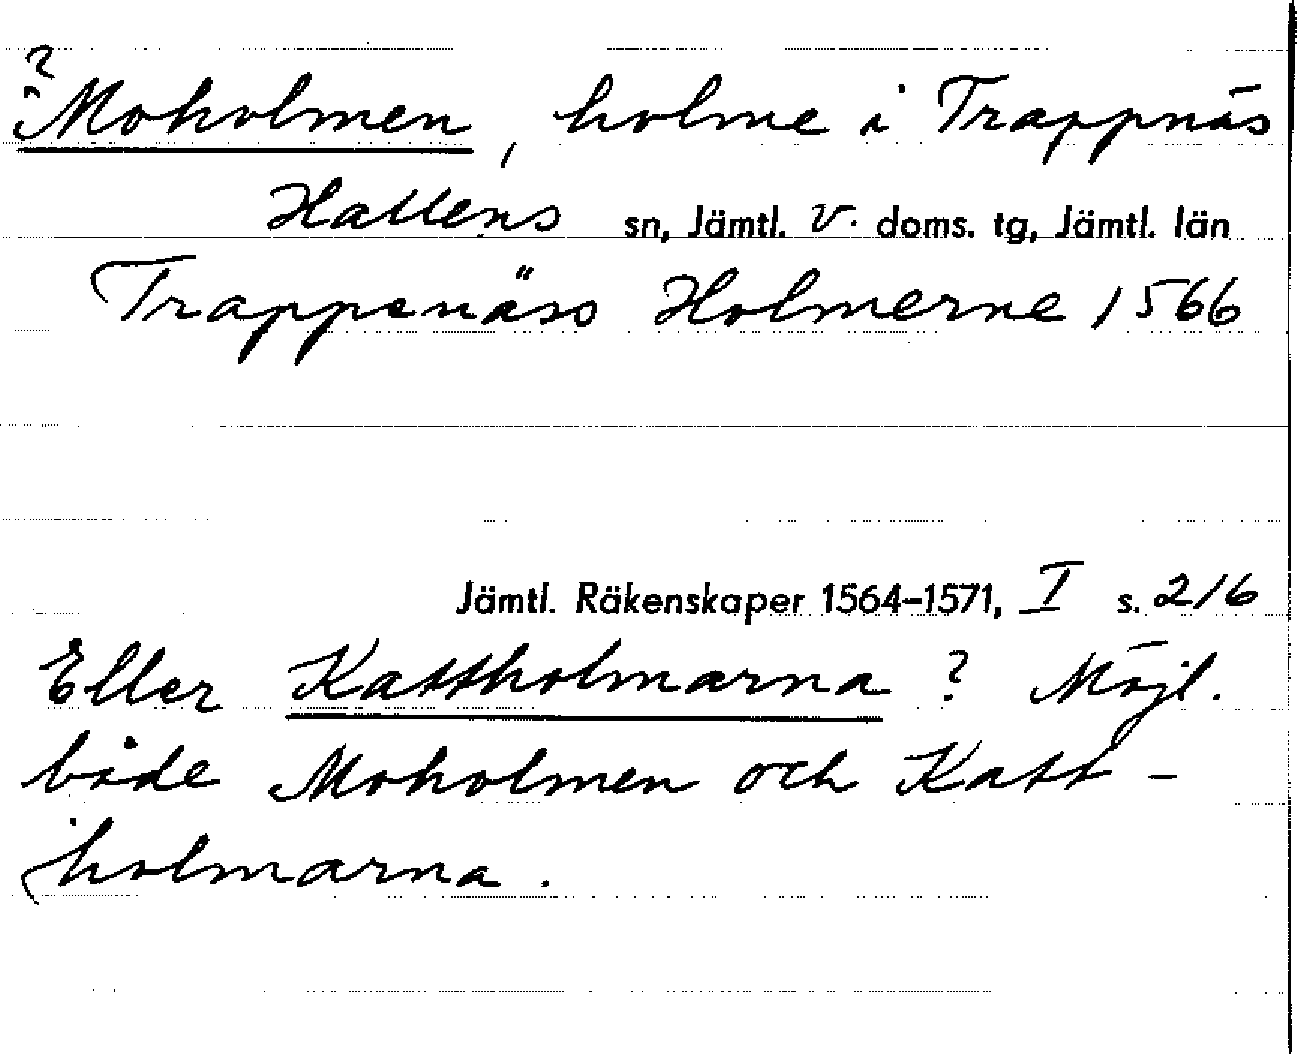 ? Moholmen, holme i Trappnäs
Hallens sn, Jämtl. v. doms. tg, Jämtl. län
Trappenäss Holmerne 1566
Jämtl. Räkenskaper 1564–1571, I s. 216
Eller Kattholmarna? Möjl.
både Moholmen och Katt-
holmarna.